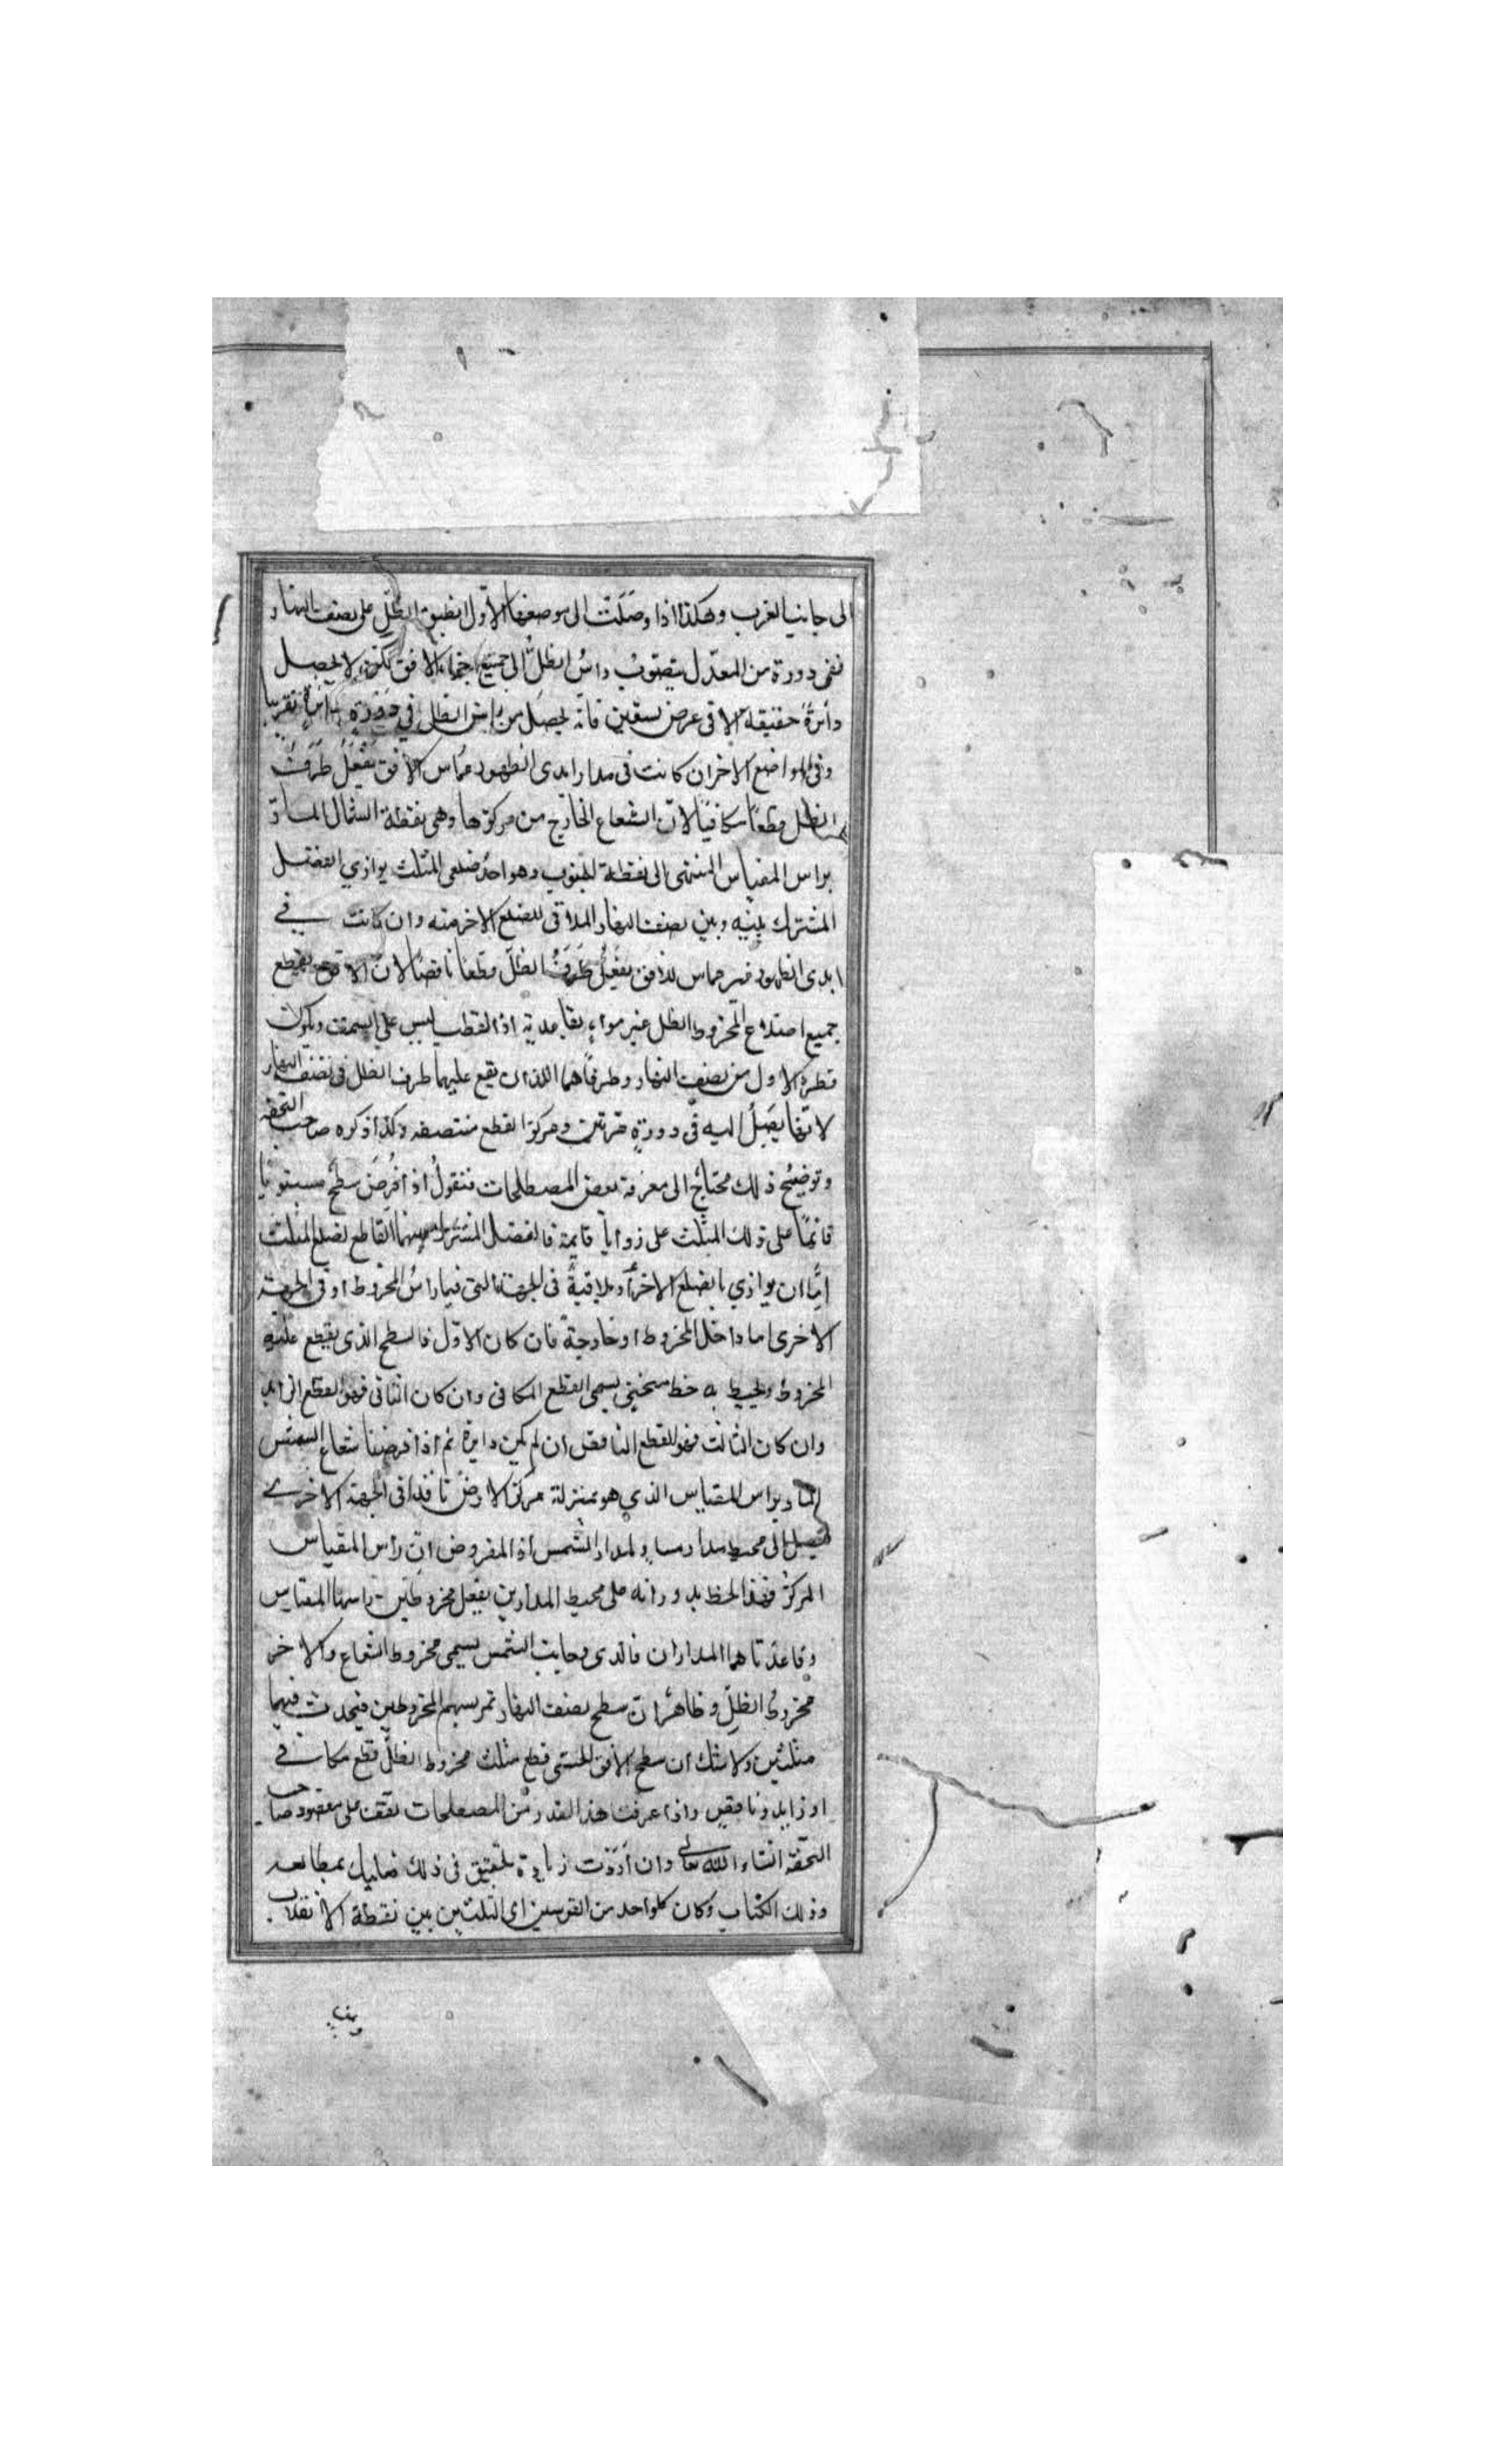 الى جانب الغرب وهكذا اذا وصَلَتْ الى موضعها الاول انطبق الظلّ على نصف النهار
ففى دورة من المعدّل يتصوّب راسُ الظلّ الى جميع اجزاء الافق لكن لا يحصل
دائرةً حقيقة الا فى عرض تسعين فانه يحصل من راس الظل فى دورة دائرة تقريبا
وفى المواضع الاخر ان كانت فى مدار ابدى الظهور مماس الافق يَفْعَلُ طَرَفُ
الظل قطعًا مكافيًا لان الشعاع الخارج من مركزها وهى بنقطة الشمال المارّ
براس المقياس المنتهى الى نقطة الجنوب وهو احد ضلعى المثلث يوازى الفصل
المشترك بينه وبين نصف النهار الملاقى للضلع الاخر منه وان كانت فى
ابدى الظهور غير مماس للافق يفعلُ طَرَفُ الظلّ قطعا ناقصًا لان الافق يقطع
جميع اضلاع المخروط الظل غير مواز لقاعدته اذ القطب ليس على السمت ويكون
قطره الاول من نصف النهار وطرفاهما اللذان يقع عليهما طرف الظل فى نصف النهار
لانها يصَلُ اليه فى دورةٍ مرتين ومركز القطع منتصفه وكذا ذكره صاحب التحفه
وتوضيح ذلك محتاجٌ الى معرفة بعض المصطلحات فنقولُ اذا فُرِضَ سطح مستويًا
قائمًا على ذلك المثلث على زوايا قايمة فالفصل المشترك بينهما القاطع لضلع المثلث
إمّا ان يوازي بالضلع الاخر أو يلاقيةُ فى الجهة التى فيها راسُ المخروط او فى الجهة
الاخرى اما داخل المخروط او خارجة فان كان الاوّل فالسطح الذى يقطع عليه
المخروط ويحيط به خط منحنى يسمى القطع المكافى وان كان الثانى فهو القطع الزايد
وان كان الثالث فهو القطع الناقص ان لم يكن دايرة ثم اذا فرضنا شعاع الشمس
المار براس المقياس الذي هو بمنزلة مركز الارض نافذا فى الجهة الاخرى
فيصل الى محيط مدار مساوٍ لمدار الشمس اذ المفروض انّ رأس المقياس
المركزُ فهذا الخط بدورانه على محيط المدارين يفعل مخروطين راسهما المقياس
وقاعدتاهما المداران فالذى بجانب الشمس يسمى مخروط الشعاع والاخر
مخروطُ الظلِّ وظاهرٌ ان سطح نصف النهار تمر بسهم المخروطين فيحدث فيهما
مثلثين ولا شك ان سطح الافق الحسى قطع مثلث مخروط الظلّ قطع مكافى
او زايد وناقص واذا عرفت هذا القدر من المصطلحات تقف على مقصود صاحب
التحفة انشاء الله تعالى وان أرَدْت زيادة تحقيق فى ذلك فعليك بمطالعه
وذلك الكتاب وكان كلواحد من القوسين اى الثلثين بين نقطة الانقلاب
وبين